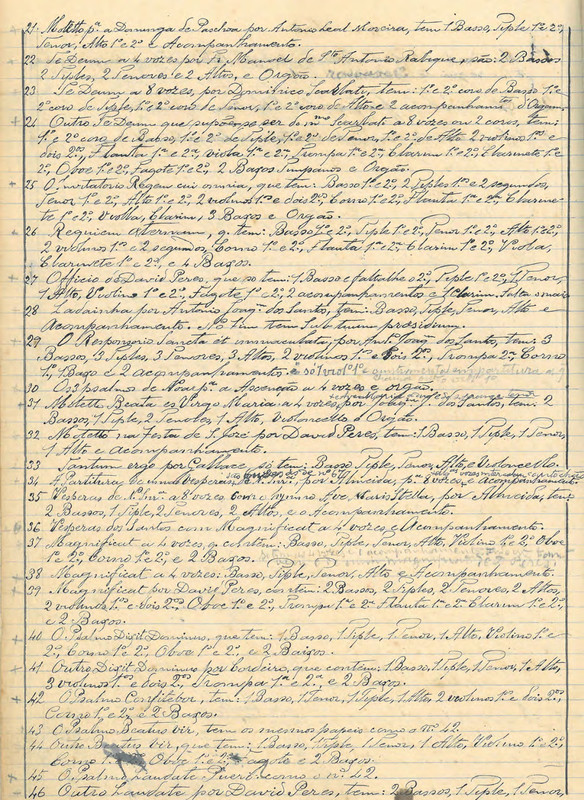 21. Motetto pª a Dominga de Paschoa por Antonio Leal Moreira, tem: 1 Basso, Tiple 1º e 2º,
Tenor, Alto 1º e 2º e Acompanhamento.
22 Te Deum a 4 vozes por Fr. Manoel de Stº Antonio são: 2 Bassos
2 Tiples, 2 Tenores e 2 Altos, e Orgão.
23 Te Deum a 8 vozes, por Dominico Scarlati, tem: 1º e 2º coro de Basso 1º e
2º coro de Tiple, 1º e 2º coro de Tenor, 1º e 2º coro de Alto e 2 acompanhamtos d'Orgam.
24 Outro Te Deum que suppoe-se ser do mmo Scarlati a 8 vozes ou 2 coros, tem:
1º e 2º coro de Basso, 1º e 2º de Tiple, 1º e 2º de Tenor, 1º e 2º de Alto 2 violinos 1os e
dois 2os, Flauta 1ª e 2ª, Viola 1ª e 2ª, Trompa 1ª e 2ª, Clarim 1º e 2º, Clarinete 1º e
2º, Oboe 1º e 2º, Fagote 1º e 2º, 2 Baços Timpanos e Orgão.
25 O Invitatorio Regem cui omnia, que tem: Basso 1º e 2º, 2 Tiples 1os e 2 segundos,
Tenor 1º e 2º, Alto 1º e 2º, 2 violinos 1os e dois 2os, Corno 1º e 2º, Flauta 1ª e 2ª, Clarine-
te 1º e 2º, Violla, Clarim, 3 Baços e Orgão.
26 Requiem Æternam, q. tem: Basso 1º e 2º, Tiple 1º e 2º, Tenor 1º e 2º, Alto 1º e 2º,
2 violinos 1os e 2 segundos, Corno 1º e 2º, Flauta 1ª e 2ª, Clarim 1º e 2º, Viola,
Clarinete 1º e 2º, e 4 Baços.
27 Officio de David Peres, que so tem: 1 Basso e falta lhe o 2º, Tiple 1º e 2º, 1 Tenor,
1 Alto, Violino 1º e 2º, Fagote 1º e 2º, 2 acompanhamentos e 1 Clarim. Falta o mais
28 Ladainha por Antonio Joaqm dos Santos, tem: Basso, Tiple, Tenor, Alto e
Acompanhamento. No fim tem Sub tuum præsidium.
29 O Responsorio Sancta et immaculata, por Antº Joaqm dos Santos, tem: 3
Bassos, 3 Tiples, 3 Tenores, 3 Altos, 2 violinos 1os e dois 2os, Trompa 2ª, Corno
1º, 1 Baço e 2 acompanhamentos.
30 Os 3 psalmos de Noa pª a Ascenção a 4 vozes e orgão.
31 Motetto Beata es Virgo Maria a 4 vozes, por Joaqm dos Santos, tem: 2
Bassos, 1 Tiple, 2 Tenores, 1 Alto, Violoncello e Orgão.
32 Motetto na Festa de S. José por David Peres, tem: 1 Basso, 1 Tiple, 1 Tenor,
1 Alto e Acompanhamento.
33 Tantum ergo por só tem: Basso, Tiple, Tenor, Alto, e Violoncello.
34 A Partitura de umas Vesperas de N. Snrª, por Almeida, pª 8 vozes, e Acompanhamento
35 Vesperas de N. Snrª a 8 vozes, com o hymno Ave Maris Stella, por Almeida, tem:
2 Bassos, 1 Tiple, 2 Tenores, 2 Altos, e o Acompanhamento.
36 Vesperas dos Santos com Magnificat a 4 vozes e Acompanhamento.
37 Magnificat a 4 vozes, q. contem: Basso, Tiple, Tenor, Alto, Violino 1º e 2º Oboe
1º e 2º, Corno 1º e 2º, e 2 Baços.
38 Magnificat a 4 vozes: Basso, Tiple, Tenor, Alto e Acompanhamento.
39 Magnificat por David Peres, contem: 2 Bassos, 2 Tiples, 2 Tenores, 2 Altos,
2 violinos 1os e dois 2os Oboe 1º e 2º, Trompa 1ª e 2ª Flauta 1ª e 2ª Clarim 1º e 2º,
e 2 Baços.
40 O Psalmo Dixit Dominus, que tem: 1 Basso, 1 Tiple, 1 Tenor, 1 Alto, Violino 1º e
2º, Corno 1º e 2º, Oboe 1º e 2º, e 2 Baixos.
41 Outro Dixit Dominus por Cordeiro, que contem: 1 Basso, 1 Tiple, 1 Tenor, 1 Alto,
3 violinos 1os e dois 2os, Trompa 1ª e 2ª e 2 Baços.
42 O Psalmo Confitebor, tem: 1 Basso, 1 Tenor, 1 Tiple, 1 Alto, 2 violinos 1os e dois 2os,
Corno 1º e 2º e 2 Baços.
43 O Psalmo Beatus vir, tem os mesmos papeis como o nº 42.
44 Outro Beatus vir, que tem: 1 Basso, 1 Tiple, 1 Tenor, 1 Alto, Violino 1º e 2º,
Corno 1º Oboe 1º e 2º, Fagote e 2 Baços.
45 O Psalmo Laudate Pueri como o nº 42
46 Outro Laudate por David Peres, tem: 2 Bassos, 1 Tiple, 1 Tenor,